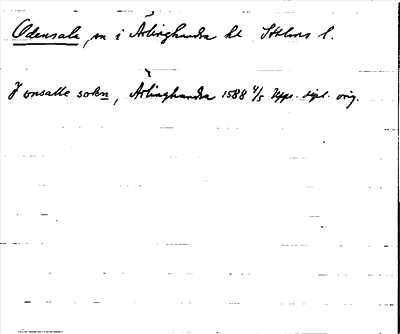 Odensala, sn i Ärlinghundra hd Sthlms l.
J onsalle sokn, Ärlinghundra 1588 4/5 Upps. dipl. orig.